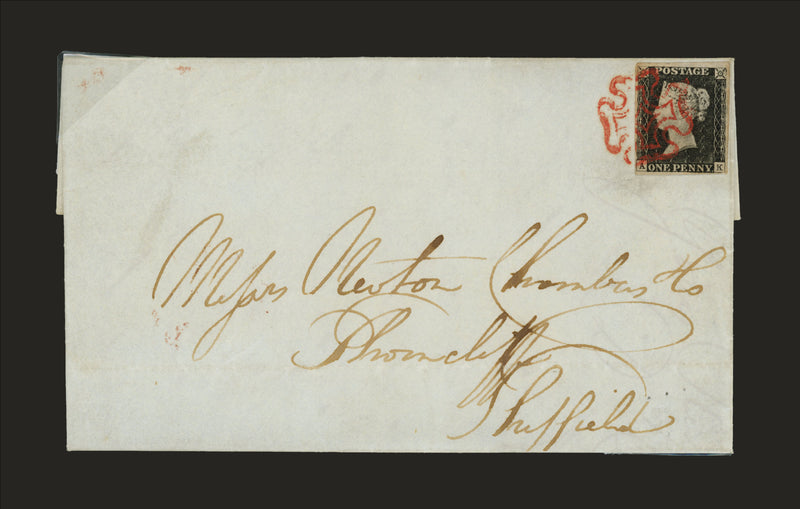 POSTAGE
A ONE PENNY K
Messrs Newton Chambers & Co
Thorncliffe
Sheffield